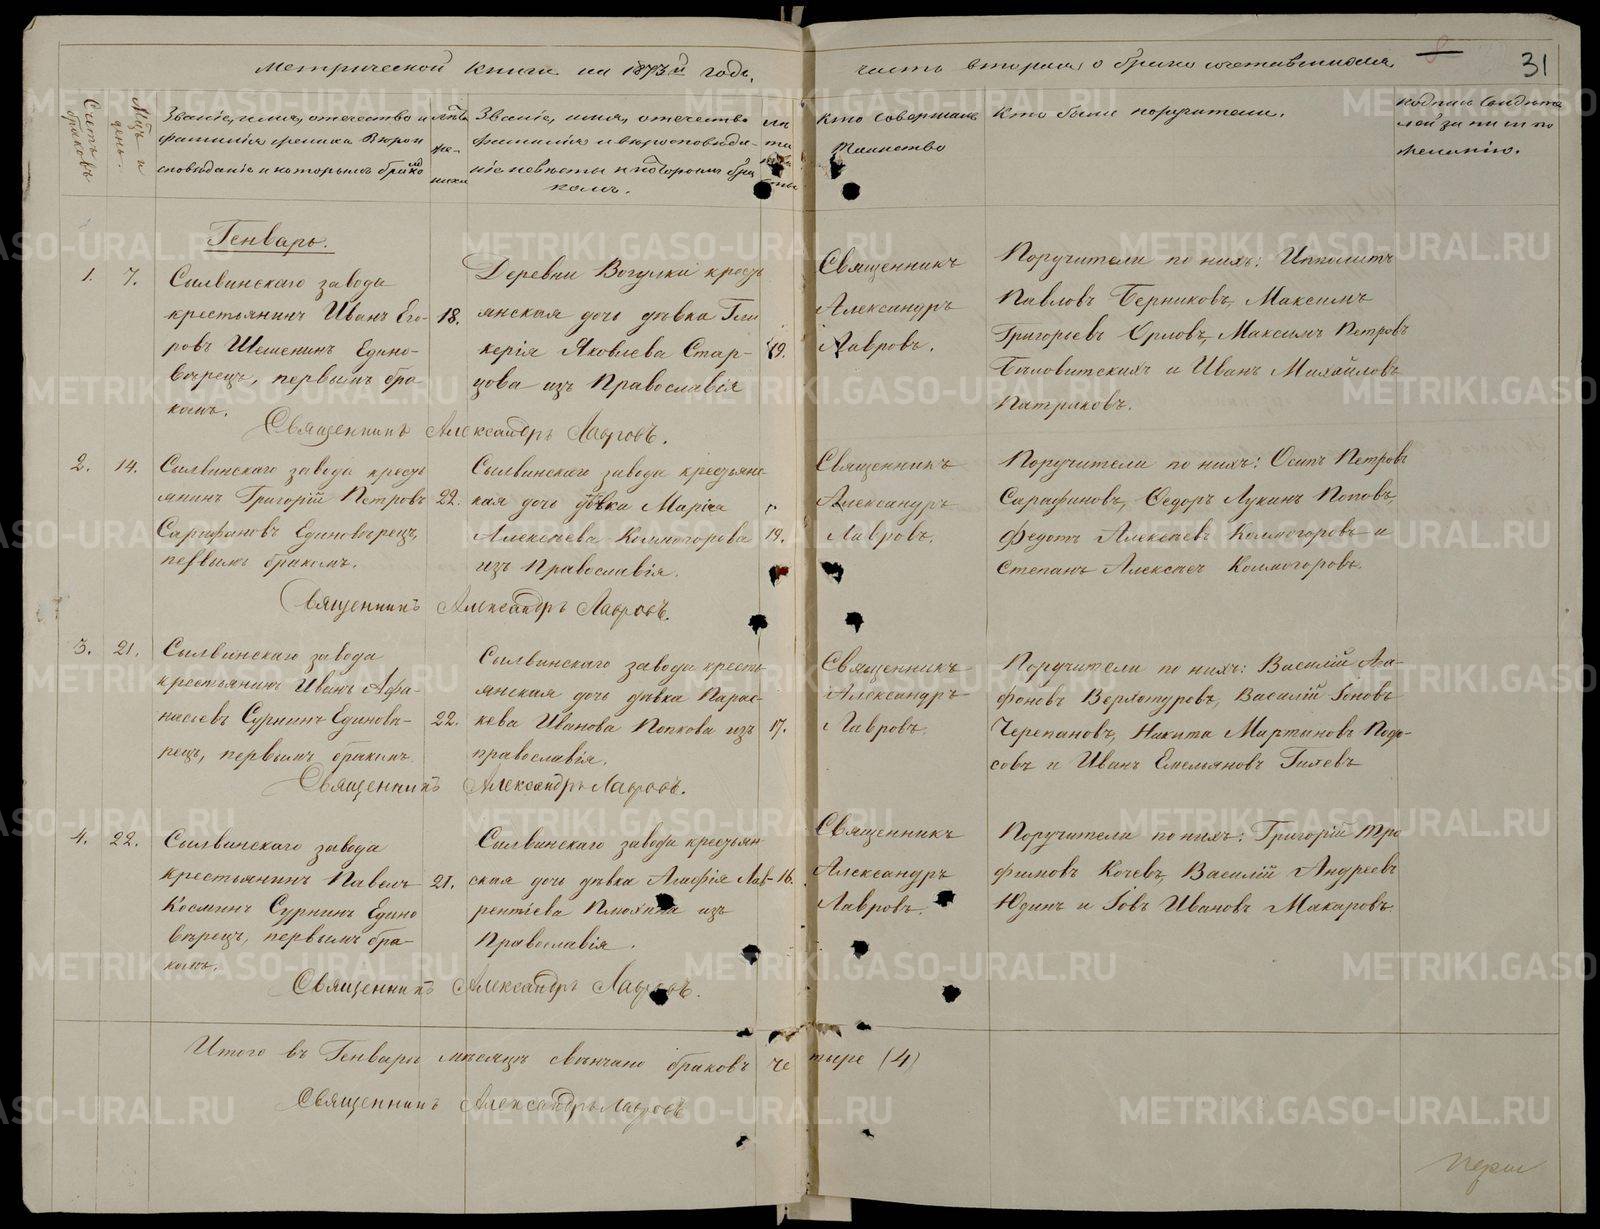 Метрической книги на 1873й годъ,
часть вторая, о бракосочетавшихся
31
Счетъ браковъ
Мѣц. и день.
Званіе, имя, отчество и
фамилія жениха Вѣрои
сповѣданіе и которымъ бракомъ
лѣта
же-
ниха
Званіе, имя, отечество
фамилія и вѣроисповѣда-
ніе невѣсты и которымъ бра
комъ.
лѣ
та
Кто совершалъ
Таинство
Кто были поручители.
подпись свидѣте
лей записи по
желанію.
Генварь.
1. 7.
Сылвинскаго завода
крестьянинъ Иванъ Его-
ровъ Шешенинъ Едино-
вѣрецъ, первымъ бра-
комъ.
18.
Деревни Вогулки кресть
янская дочь дѣвка Гли
керія Яковлева Стар-
цова изъ Православія
19.
Священникъ
Александръ
Лавровъ.
Поручители по нихъ: Ипполитъ
Павловъ Берниковъ, Максимъ
Григорьевъ Орловъ, Максимъ Петровъ
Бѣловитскихъ и Иванъ Михайловъ
Патраковъ.
Священникъ Александръ Лавровъ.
2. 14.
Сылвинскаго завода кресть
янинъ Григорій Петровъ
Сарафановъ Единовѣрецъ,
первымъ бракомъ.
22.
Сылвинскаго завода крестьянс
кая дочь дѣвка Марія
Алексѣева Колмогорова
изъ Православія.
19.
Священникъ
Александръ
Лавровъ.
Поручители по нихъ: Осипъ Петровъ
Сарафановъ, Ѳедоръ Лукинъ Поповъ,
Федотъ Алексѣевъ Колмогоровъ и
Степанъ Алексѣевъ Колмогоровъ.
Священникъ Александръ Лавровъ.
3. 21.
Сылвинскаго завода
крестьянинъ Иванъ Афа-
насьевъ Сурнинъ Единовѣ-
рецъ, первымъ бракомъ
22.
Сылвинскаго завода кресть
янская дочь дѣвка Парас-
кева Иванова Попкова изъ
православія.
17.
Священникъ
Александръ
Лавровъ.
Поручители по нихъ: Василій Ага-
фоновъ Верхотуровъ, Василій Іоновъ
Черепановъ, Никита Мартыновъ
и Иванъ Емельяновъ Гилевъ
Священникъ Александръ Лавровъ.
4. 22.
Сылвинскаго завода
крестьянинъ Павелъ
Косминъ Сурнинъ Едино
вѣрецъ, первымъ бра-
комъ.
21.
Сылвинскаго завода крестьян
ская дочь дѣвка Агафія Лав-
рентіева Плюхина изъ
Православія.
16.
Священникъ
Александръ
Лавровъ.
Поручители по нихъ: Григорій Тро
фимовъ Кочевъ, Василій Андреевъ
Юдинъ и Іовъ Ивановъ Макаровъ.
Священникъ Александръ Лавровъ.
Итого въ Генварѣ мѣсяцѣ свѣнчано браковъ четыре (4)
Священникъ Александръ Лавровъ
METRIKI.GASO-URAL.RU